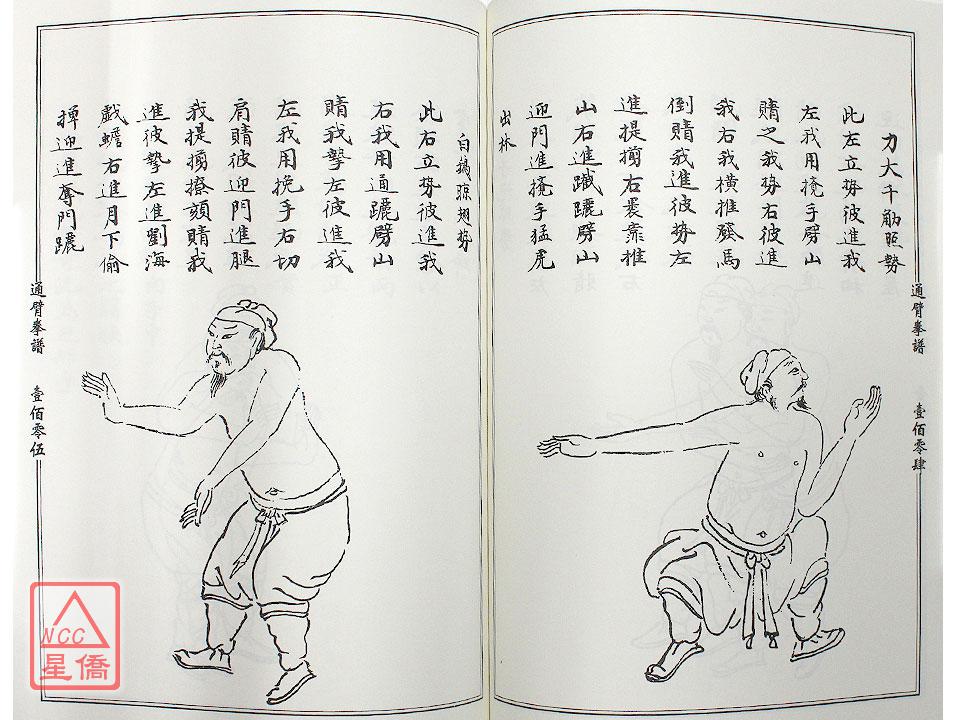 力大千觔照勢
此左立勢彼進我
左我用攙手劈山
賭之我勢右彼進
我右我橫推發馬
倒賭我進彼勢左
進提搊右裹靠推
山右進蹴躧劈山
迎門進攙手猛虎
出林
通臂拳譜
壹佰零肆
白鵝晾翅勢
此右立勢彼進我
右我用通躧劈山
賭我掣左彼進我
左我用挽手右切
肩賭彼迎門進腿
我提搊撩頭賭我
進彼掣左進劉海
戲蟾右進月下偷
迎進奪門躧
通臂拳譜
壹佰零伍
NCC
星僑